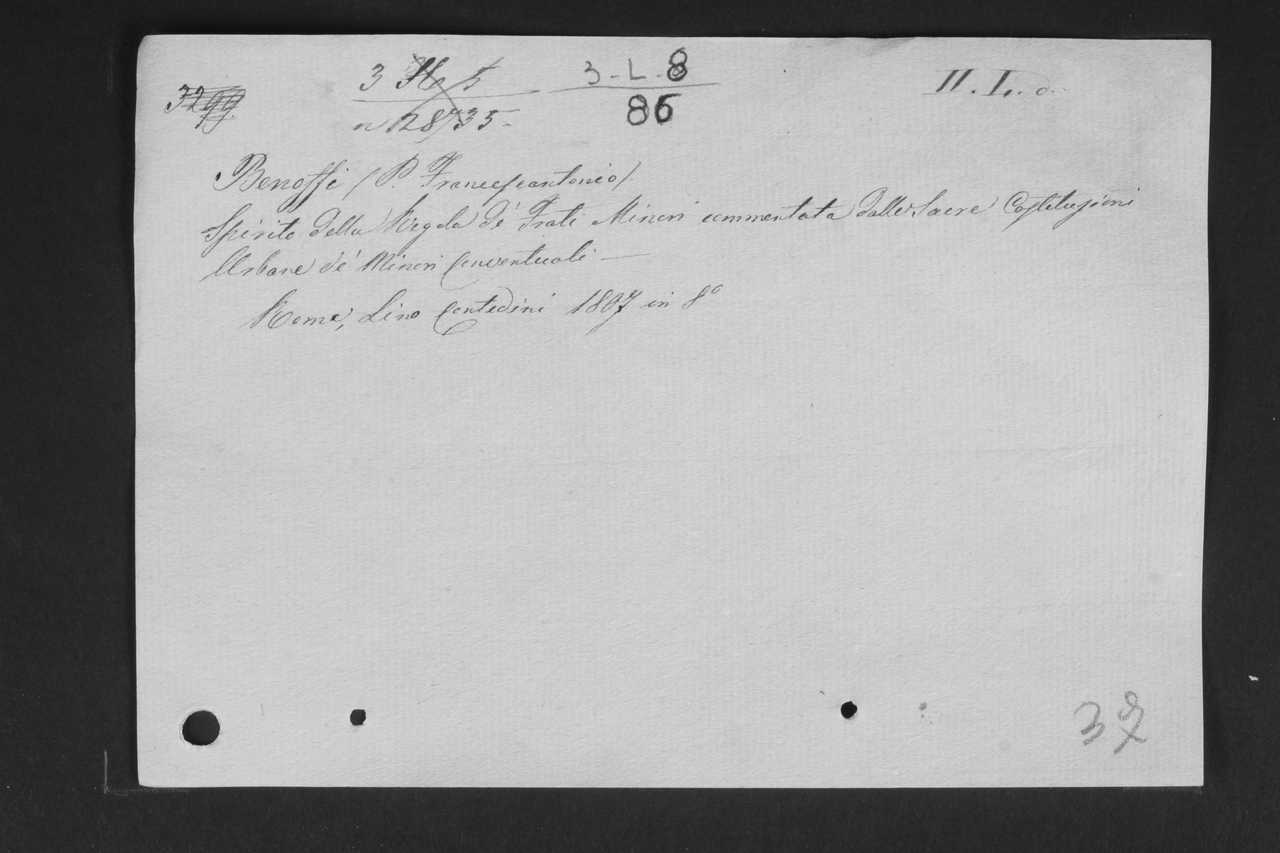 3299
3 H 5
n 128735-
3-L-8
86
II. I. a
Benoffi (P. Francescantonio)
Spirito della Regola de' Frati Minori commentata dalle Sacre Costituzioni
Urbane de' Minori Conventuali —
Roma, Lino Contedini 1807 in 8º
37